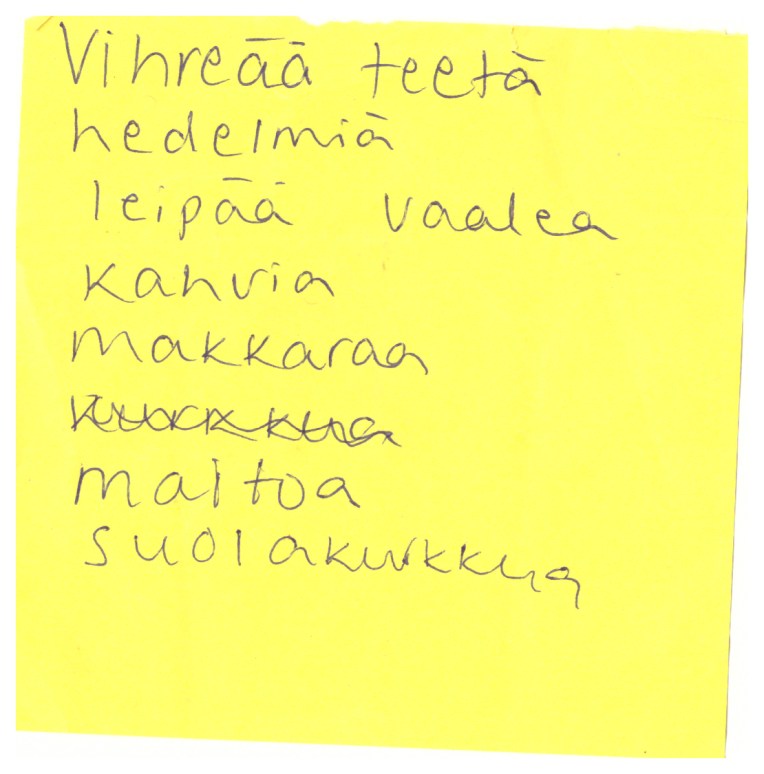 Vihreää teetä
hedelmiä
leipää vaalea
kahvia
makkaraa
maitoa
suolakurkkua